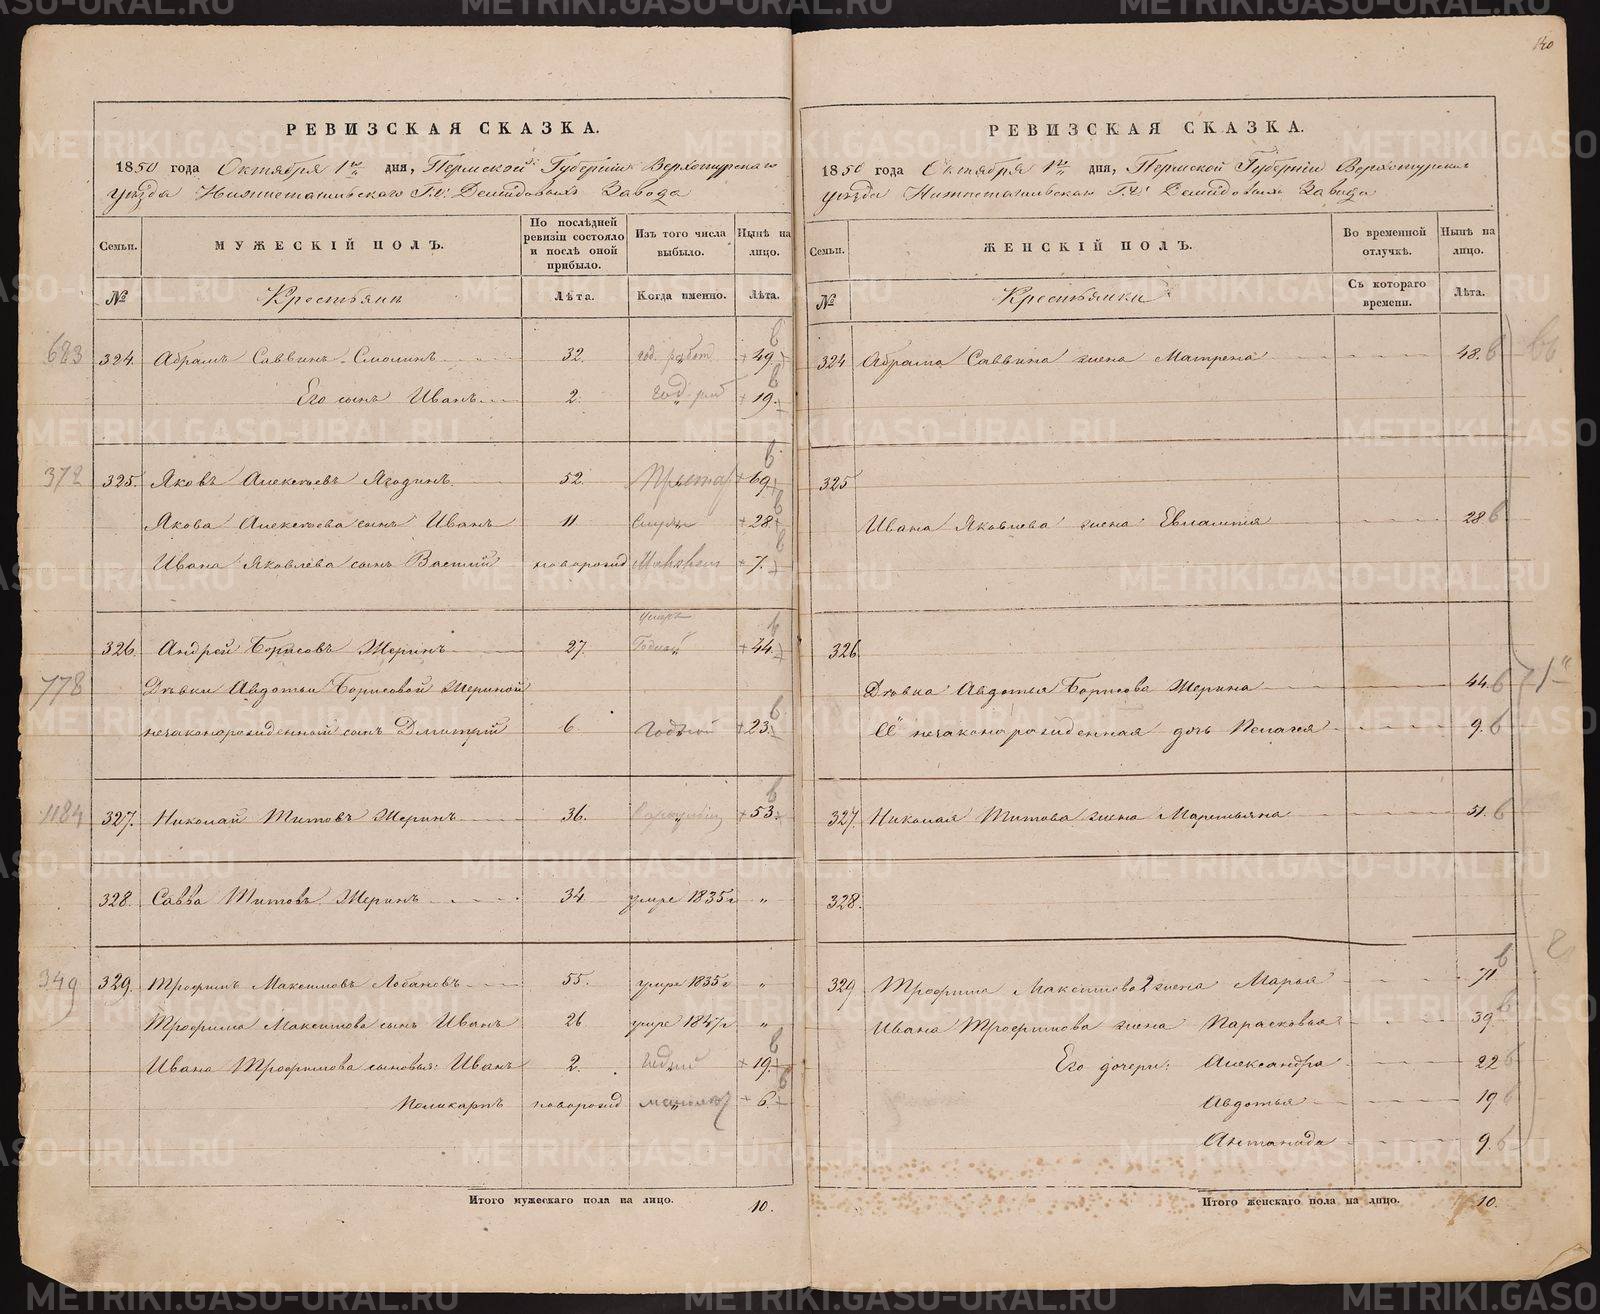 140
РЕВИЗСКАЯ СКАЗКА.
1850 года Октября 1го дня, Пермской Губерніи Верхотурскаго
уѣзда Нижнетагильскаго Г.г. Демидовыхъ Завода
Семьи.
МУЖЕСКІЙ ПОЛЪ.
По послѣдней ревизіи состояло и послѣ оной прибыло.
Изъ того числа выбыло.
Нынѣ на лицо.
№
Крестьяне
Лѣта.
Когда именно.
Лѣта.
683 324. Абрамъ Саввинъ Смолинъ 32. год. работ 49
Его сынъ Иванъ 2. год. раб 19.
372 325. Яковъ Алексѣевъ Ягодинъ 52. 69
Якова Алексѣева сынъ Иванъ 11 28
Ивана Яковлева сынъ Василій новорожд 7.
326. Андрей Борисовъ Жеринъ 27. Годной 44.
778 Дѣвки Авдотьи Борисовой Жериной
незаконорожденный сынъ Дмитрій 6. Годной 23.
1184 327. Николай Титовъ Жеринъ 36. 53.
328. Савва Титовъ Жеринъ 34 умре 1835 г "
349 329. Трофимъ Максимовъ Лобановъ 55. умре 1835 г "
Трофима Максимова сынъ Иванъ 26 умре 1847 г "
Ивана Трофимова сыновья: Иванъ 2. Годный 19.
Поликарпъ новорожд малолѣт 6.
Итого мужескаго пола на лицо. 10.
РЕВИЗСКАЯ СКАЗКА.
1850 года Октября 1го дня, Пермской Губерніи Верхотурскаго
уѣзда Нижнетагильскаго Г.г. Демидовыхъ Завода
Семьи.
ЖЕНСКІЙ ПОЛЪ.
Во временной отлучкѣ.
Нынѣ на лицо.
№
Крестьянки
Съ котораго времени.
Лѣта.
324 Абрама Саввина жена Матрена 48.
325
Ивана Яковлева жена Евлампія 28
326.
Дѣвка Авдотья Борисова Жерина 44.
Её незаконорожденная дочь Пелагея 9.
327. Николая Титова жена Маремьяна 51.
328.
329 Трофима Максимова 2 жена Марья 71
Ивана Трофимова жена Парасковья 39
Его дочери: Александра 22
Авдотья 19
Антонида 9.
Итого женскаго пола на лицо. 10.
METRIKI.GASO-URAL.RU